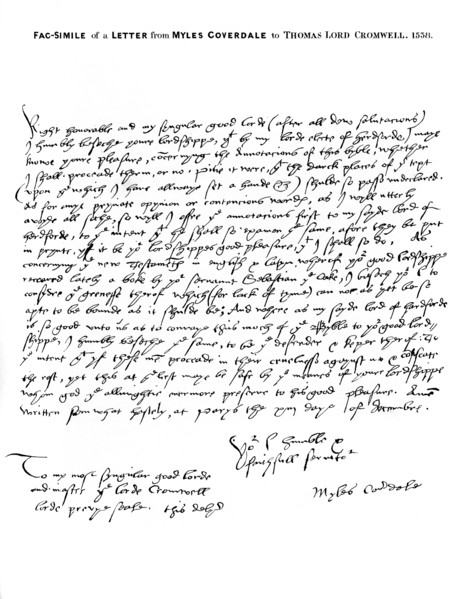 FAC-SIMILE of a LETTER from MYLES COVERDALE to THOMAS LORD CROMWELL. 1538.
Right honorable and my syngular good lorde (after all dew salutacions)
I humbly beseche youre lordshippe, yt by my lorde electe of herdforde, I maye
knowe youre pleasure, concernyng the annotacions of this bible, whether
I shall proceade therin, or no. Pitie it were, yt the darck places of ye text
(vpon ye which I haue allwaye set a hande) shulde so passe vndeclared.
As for anye pryuate opynion or contencious wordes, as I wyll vtterly
avoyde all soche, so wyll I offre ye annotacions first to my sayde lord of
herdforde, to ye intent yt he shall so examen ye same, afore they be put
in prynte, yf it be yor lordshippes good pleasure, yt I shall so do. As
concernyng ye new Testament in english & latyn wherof yor good lordshippe
receaued lately a boke by yor servaunt Sebastian ye cooke, I besech yor l to
considre ye grenesse therof which (for lack of tyme) can not as yet be so
apte to be bounde as it shulde be; And where as my sayde lord of herdforde
is so good vnto us as to convaye this much of ye Bible to yor good lord-
shippe, I humbly beseche ye same, to be ye defender & keper therof: To
ye intent yt yf these men proceade in their cruelnesse against us & confiscate
the rest, yet this at ye lest maye be safe by ye meanes of youre lordshippe
whom god ye allmightie euermore preserve to his good pleasure. Amen
Written som what hastely, at Parys the day of Decembre.
Yor l humble &
faithfull servator
Myles Couerdale
To my most syngular good lorde
and master ye lorde Cromwell
lorde preuye seale. this